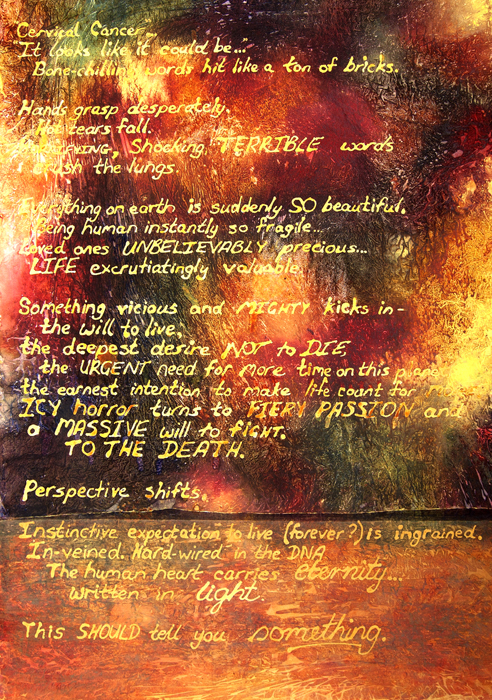 "Cervical Cancer"...
"It looks like it could be..."
Bone-chilling words hit like a ton of bricks.
Hands grasp desperately.
Hot tears fall.
Shocking, TERRIBLE words
crush the lungs.
Everything on earth is suddenly SO beautiful.
Being human instantly so fragile...
Loved ones UNBELIEVABLY precious...
LIFE excrutiatingly valuable.
Something vicious and MIGHTY kicks in-
the will to live,
the deepest desire NOT to DIE,
the URGENT need for more time on this planet
the earnest intention to make life count for
ICY horror turns to FIERY PASSION and
a MASSIVE will to FIGHT.
TO THE DEATH.
Perspective shifts.
Instinctive expectation to live (forever?) is ingrained.
In-veined. Hard-wired in the DNA
The human heart carries eternity...
written in light.
This SHOULD tell you something.